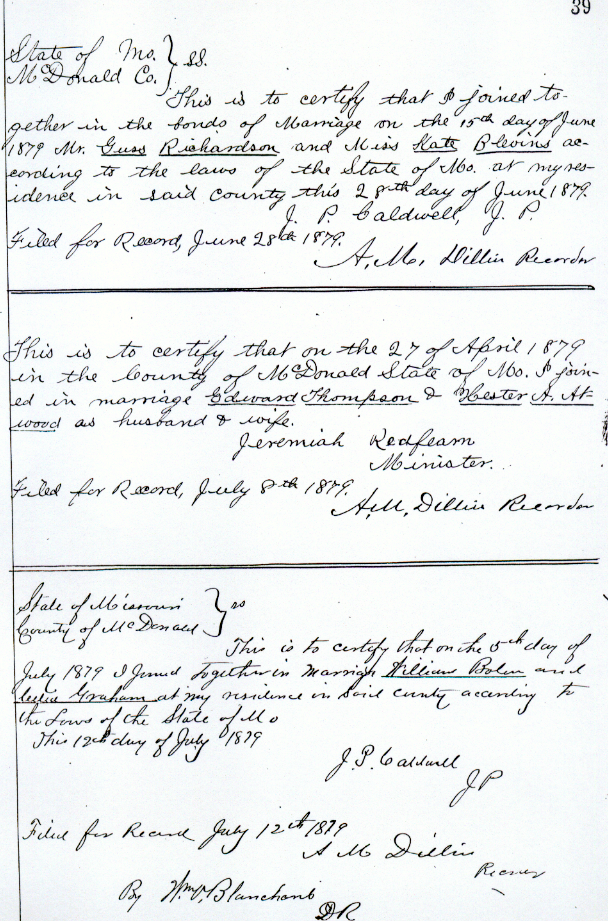 39
State of Mo. } ss.
McDonald Co.
This is to certify that I joined to-
gether in the bonds of Marriage on the 15th day of June
1879 Mr. Guss Richardson and Miss Kate Blevins ac-
cording to the laws of the State of Mo. at my res-
idence in said county this 28th day of June 1879.
J. P. Caldwell, J. P.
Filed for Record, June 28th 1879.
A. M. Dillin Recorder
This is to certify that on the 27 of April 1879
in the County of McDonald State of Mo. I join-
ed in marriage Edward Thompson & Hester A. At-
wood as husband & wife.
Jeremiah Redfearn
Minister.
Filed for Record, July 8th 1879.
A. M. Dillin Recorder
State of Missouri } ss
County of McDonald
This is to certify that on the 5th day of
July 1879 I Joined Together in marriage William Bolen and
Graham at my residence in said county according to
the Laws of the State of Mo
This 12th day of July 1879
J. P. Caldwell
J P
Filed for Record July 12th 1879
A M Dillin
By Wm. Blanchard
D R